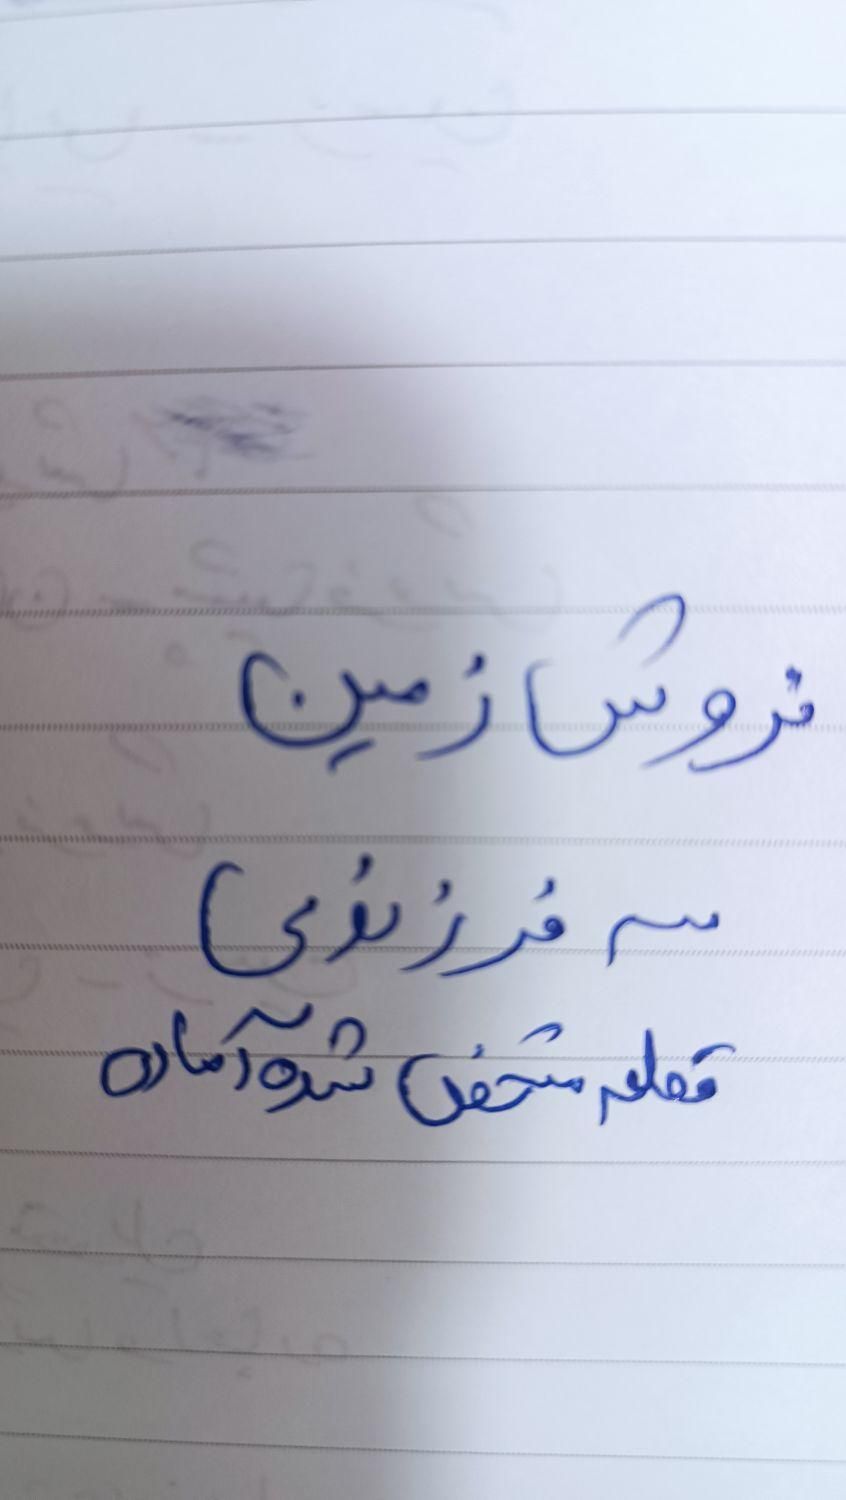 فروش زمین
سه فرزنومی
قطعه مشخص شده آماده